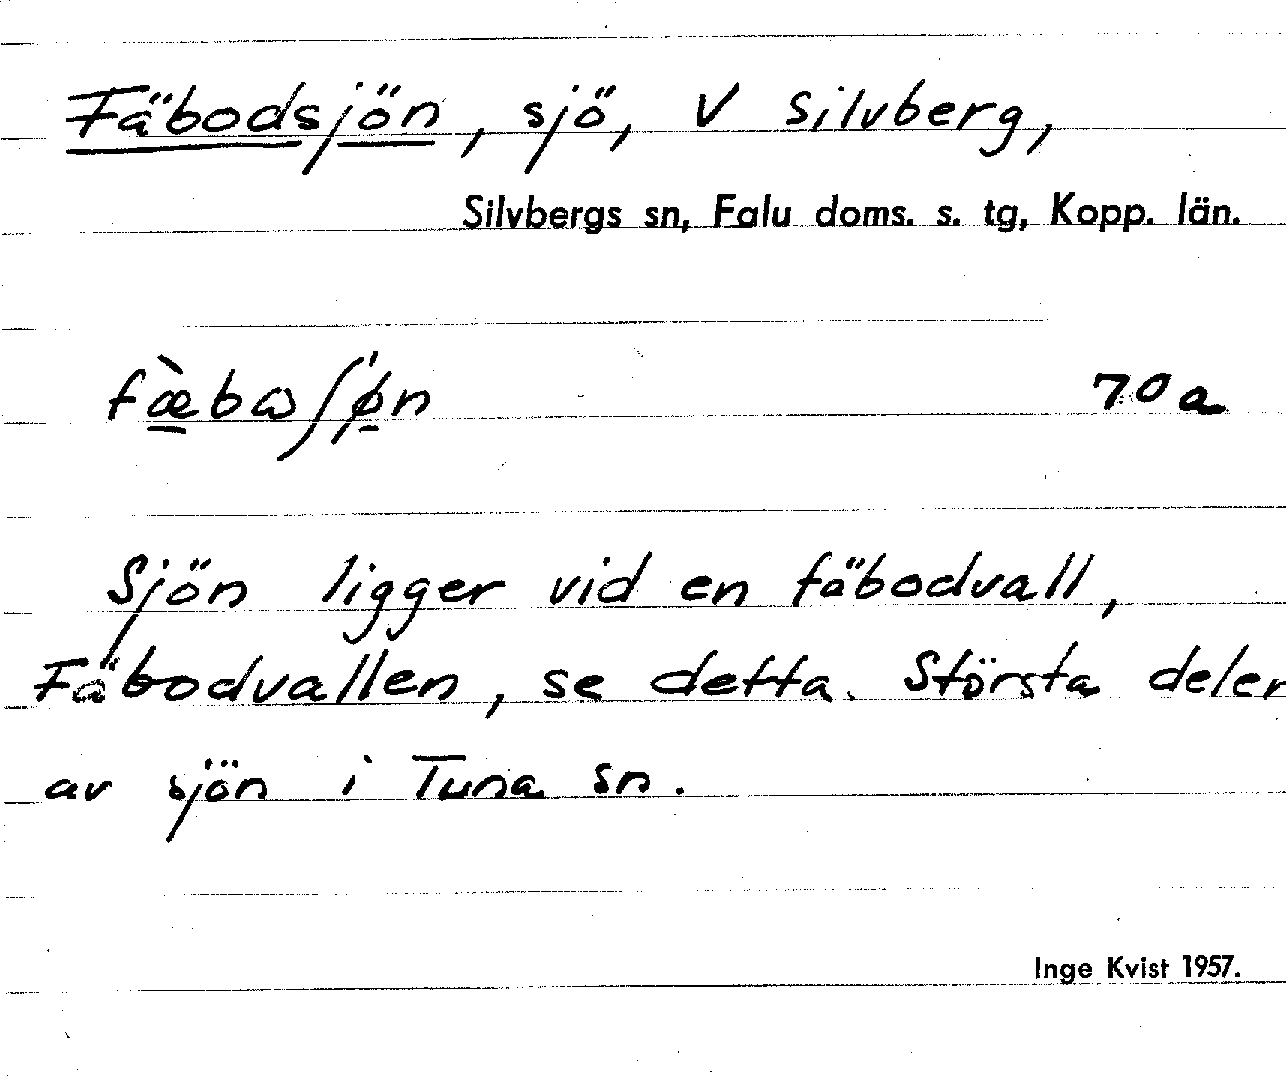 Fäbodsjön, sjö, V Silvberg,
Silvbergs sn, Falu doms. s. tg, Kopp. län.
fæ̀bɷʃǿn 70a
Sjön ligger vid en fäbodvall,
Fäbodvallen, se detta. Största delen
av sjön i Tuna sn.
Inge Kvist 1957.